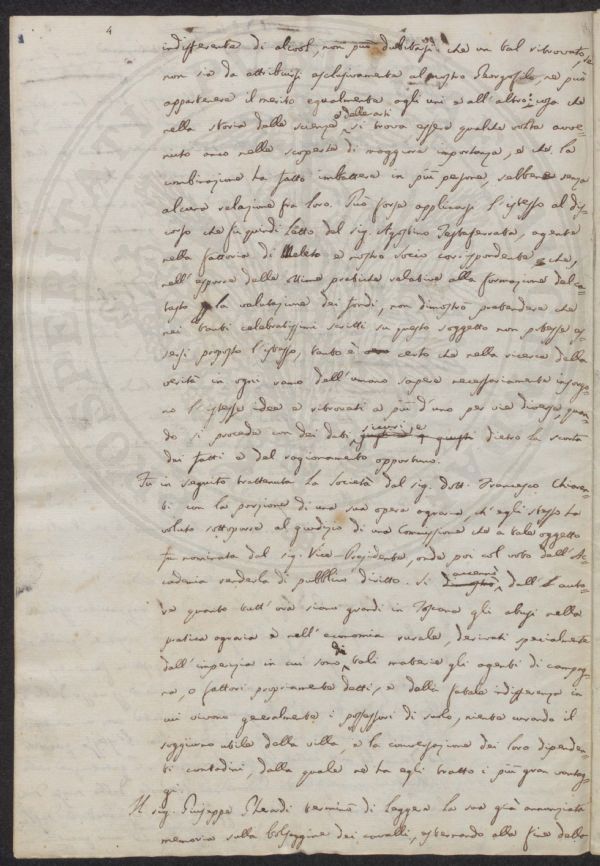 4
indifferente di alcool, non può dubitarsi che un tal ritrovato, se
non sia da attribuirsi esclusivamente al nostro Georgofilo, ne può
appartenere il merito egualmente agli uni e all'altro: cosa che
nella storia delle scienze e delle arti si trova essere qualche volta avve-
nuto anco nelle scoperte di maggiore importanza, e che la
combinazione ha fatto imbattere in più persone, sebbene senza
alcuna relazione fra loro. Può forse applicarsi l'istesso al dis-
corso che fu quindi letto dal sig. Agostino Testaferrata, agente
nella fattoria di Meleto e nostro socio corrispondente che,
nell'esporre delle ottime pratiche relative alla formazione del ca-
tasto e la valutazione dei fondi, non dimostrò pretendere che
nei tanti celebratissimi scritti su questo soggetto non potesse es-
sersi proposto l'istesso, tanto è certo che nella ricerca della
verità in ogni ramo dell'umano sapere necessariamente insorgo-
no l'istesse idee e ritrovati a più d'uno per vie diverse, quan-
do si proceda con dei dati sicuri e dietro la scorta
dei fatti e del ragionamento opportuno.
Fu in seguito trattenuta la Società dal sig. dott. Francesco Chiaren-
ti con la porzione di una sua opera agraria, ch'egli stesso ha
voluto sottoporre al giudizio di una Commissione che a tale oggetto
fu nominata dal sig. Vice-Presidente, onde poi col voto dell'Ac-
cademia renderla di pubblico diritto. Si accennò dall'auto-
re quanto tutt'ora siano grandi in Toscana gli abusi nella
pratica agraria e nell'economia rurale, derivati specialmente
dall'imperizia in cui sono di tali materie gli agenti di campag-
na, o fattori propriamente detti, e dalla fatale indifferenza in
cui vivono generalmente i possessori di suolo, niente curando il
soggiorno utile della villa, e la conversazione dei loro dipenden-
ti contadini, dalla quale ne ha egli tratto i più gran vantag-
gi.
Il sig. Giuseppe terminò di leggere la sua già annunziata
memoria sulla bolsaggine dei cavalli, esternando alla fine della